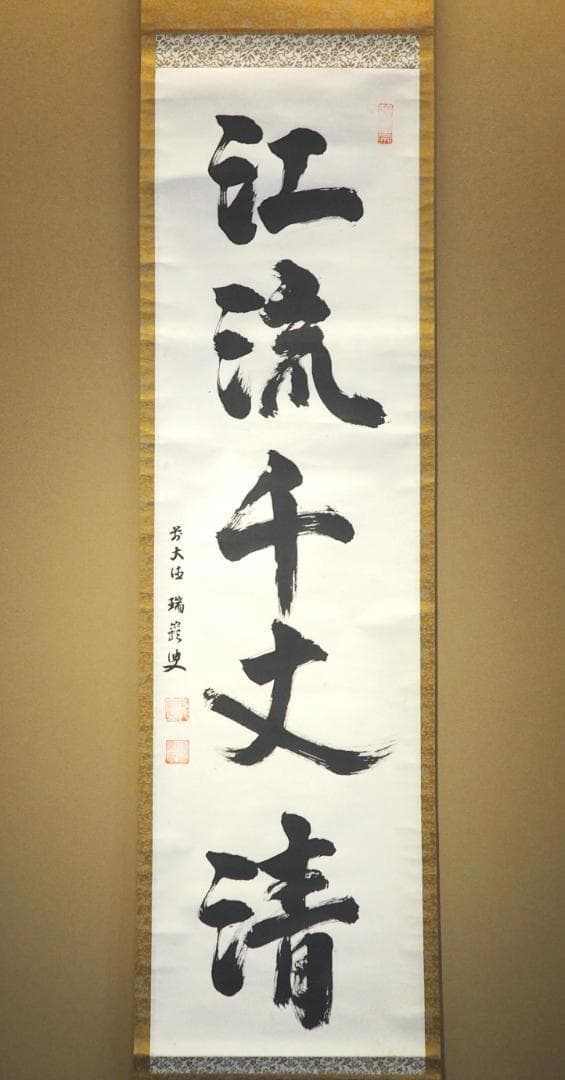 江流千丈清
前大徳 瑞巖叟